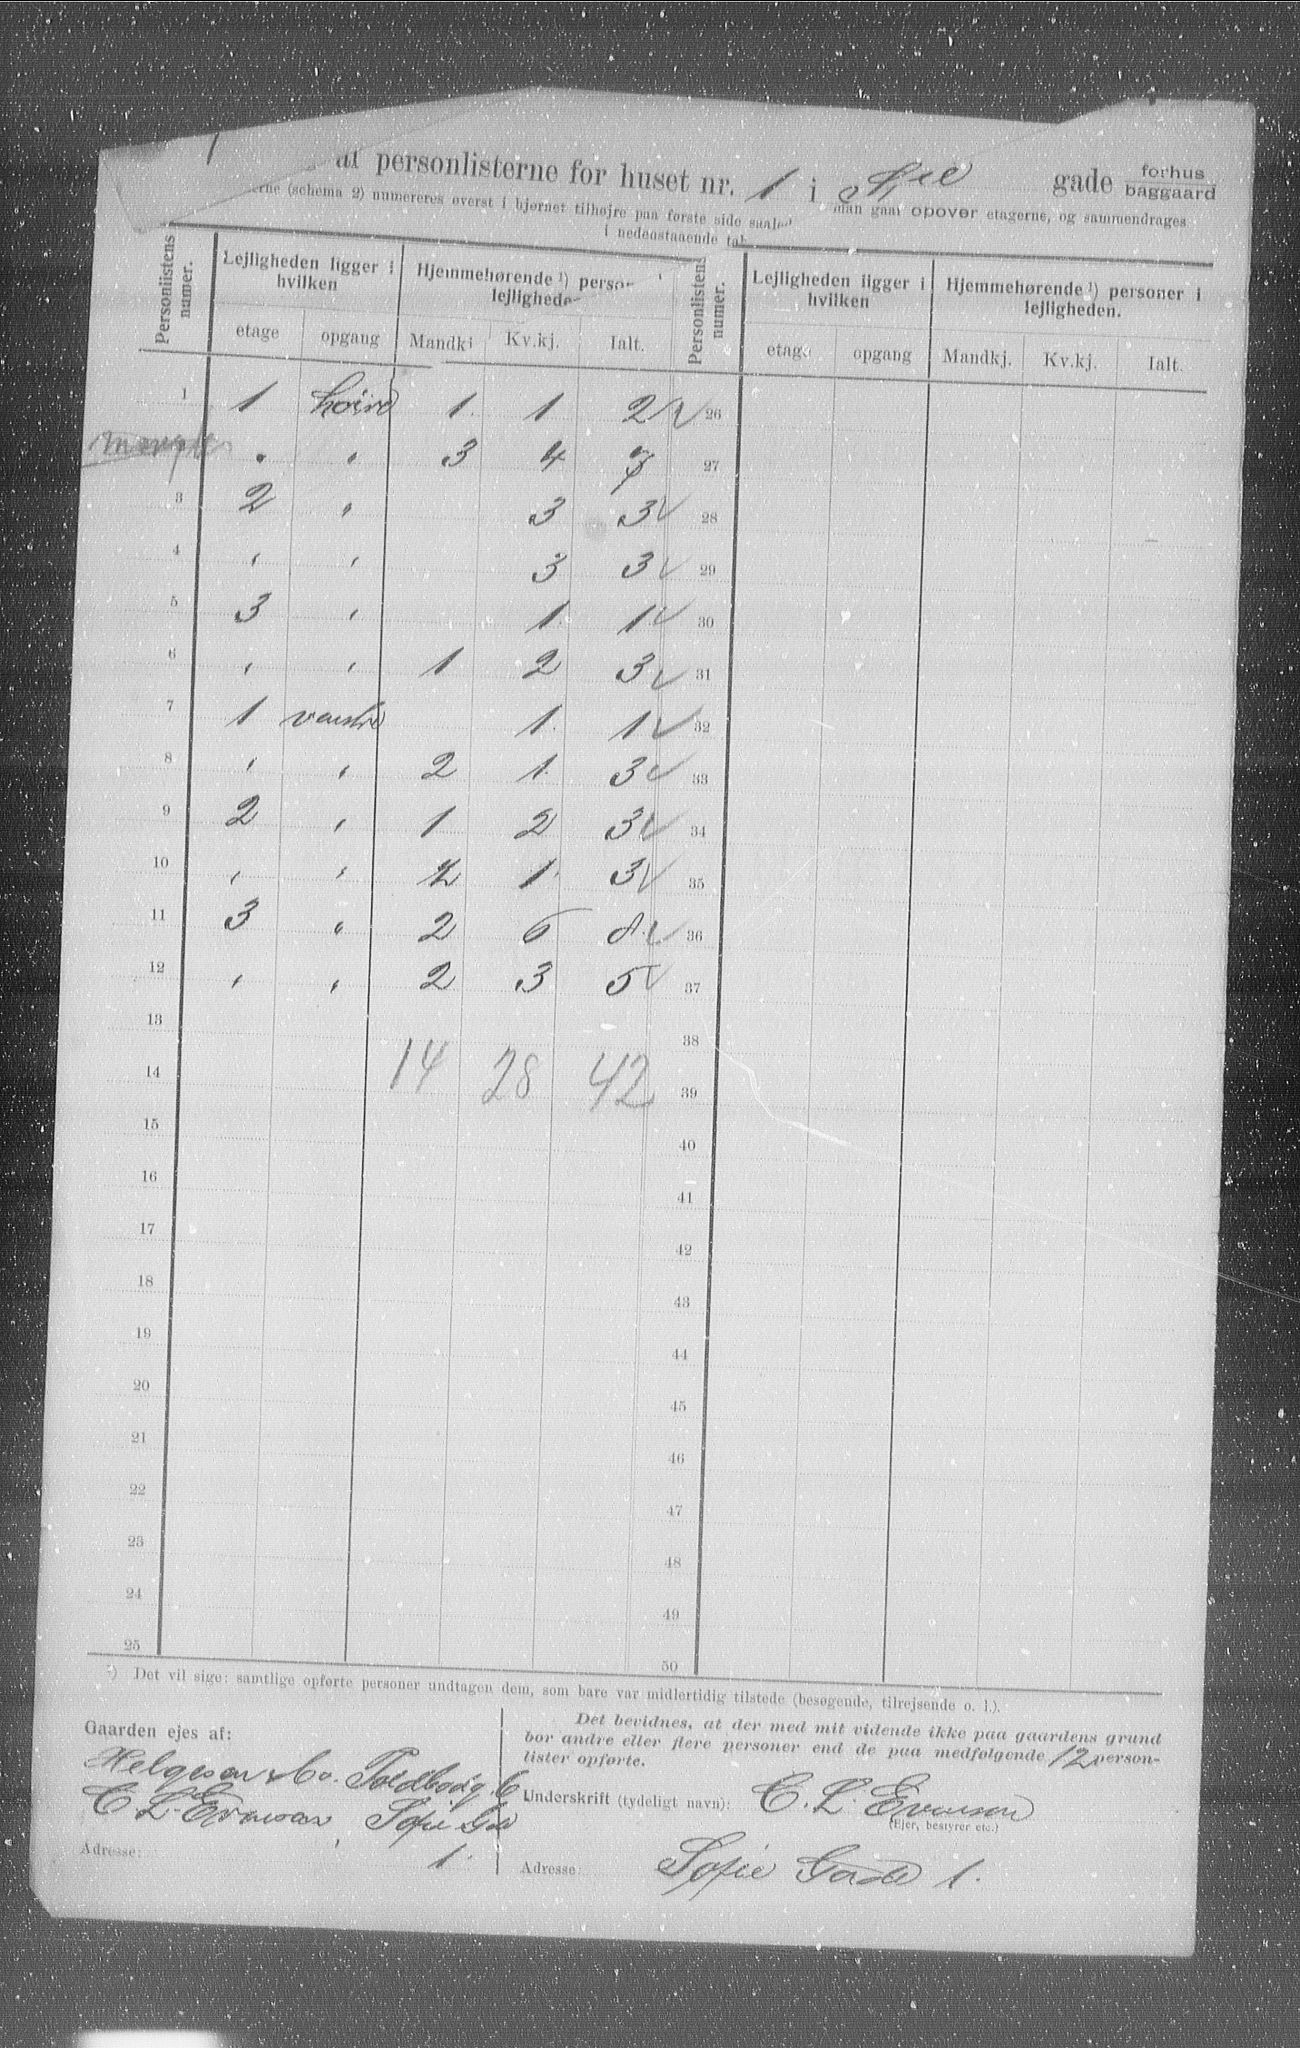 af personlisterne for huset nr. 1 i Sofie gade forhus baggaard
erne (schema 2) numereres øverst i hjørnet tilhøjre paa første side saaled man gaar opover etagerne, og sammendrages
i nedenstaaende tab
Personlistens numer. Lejligheden ligger i hvilken Hjemmehørende ¹) person i lejlighede Personlistens numer. Lejligheden ligger i hvilken Hjemmehørende ¹) personer i lejligheden.
etage opgang Mandkj Kv.kj. Ialt. etage opgang Mandkj. Kv.kj. Ialt.
1 1 høire 1 1 2 ✓ 26
mangler " " 3 4 7 27
3 2 " 3 3 ✓ 28
4 " " 3 3 ✓ 29
5 3 " 1 1 ✓ 30
6 " " 1 2 3 ✓ 31
7 1 venstre 1 1 ✓ 32
8 " " 2 1 3 ✓ 33
9 2 " 1 2 3 ✓ 34
10 " " 2 1 3 ✓ 35
11 3 " 2 6 8 ✓ 36
12 " " 2 3 5 ✓ 37
13 38
14 14 28 42 39
15 40
16 41
17 42
18 43
19 44
20 45
21 46
22 47
23 48
24 49
25 50
¹) Det vil sige: samtlige opførte personer undtagen dem, som bare var midlertidig tilstede (besøgende, tilrejsende o. l.).
Gaarden ejes af:
Helgesen & Co. Toldbodg. 6
C. L. Evensen Sofie Gd
Adresse: 1.
Det bevidnes, at der med mit vidende ikke paa gaardens grund
bor andre eller flere personer end de paa medfølgende 12 person-
lister opførte.
Underskrift (tydeligt navn): C. L. Evensen
(Ejer, bestyrer etc.)
Adresse: Sofie Gade 1.